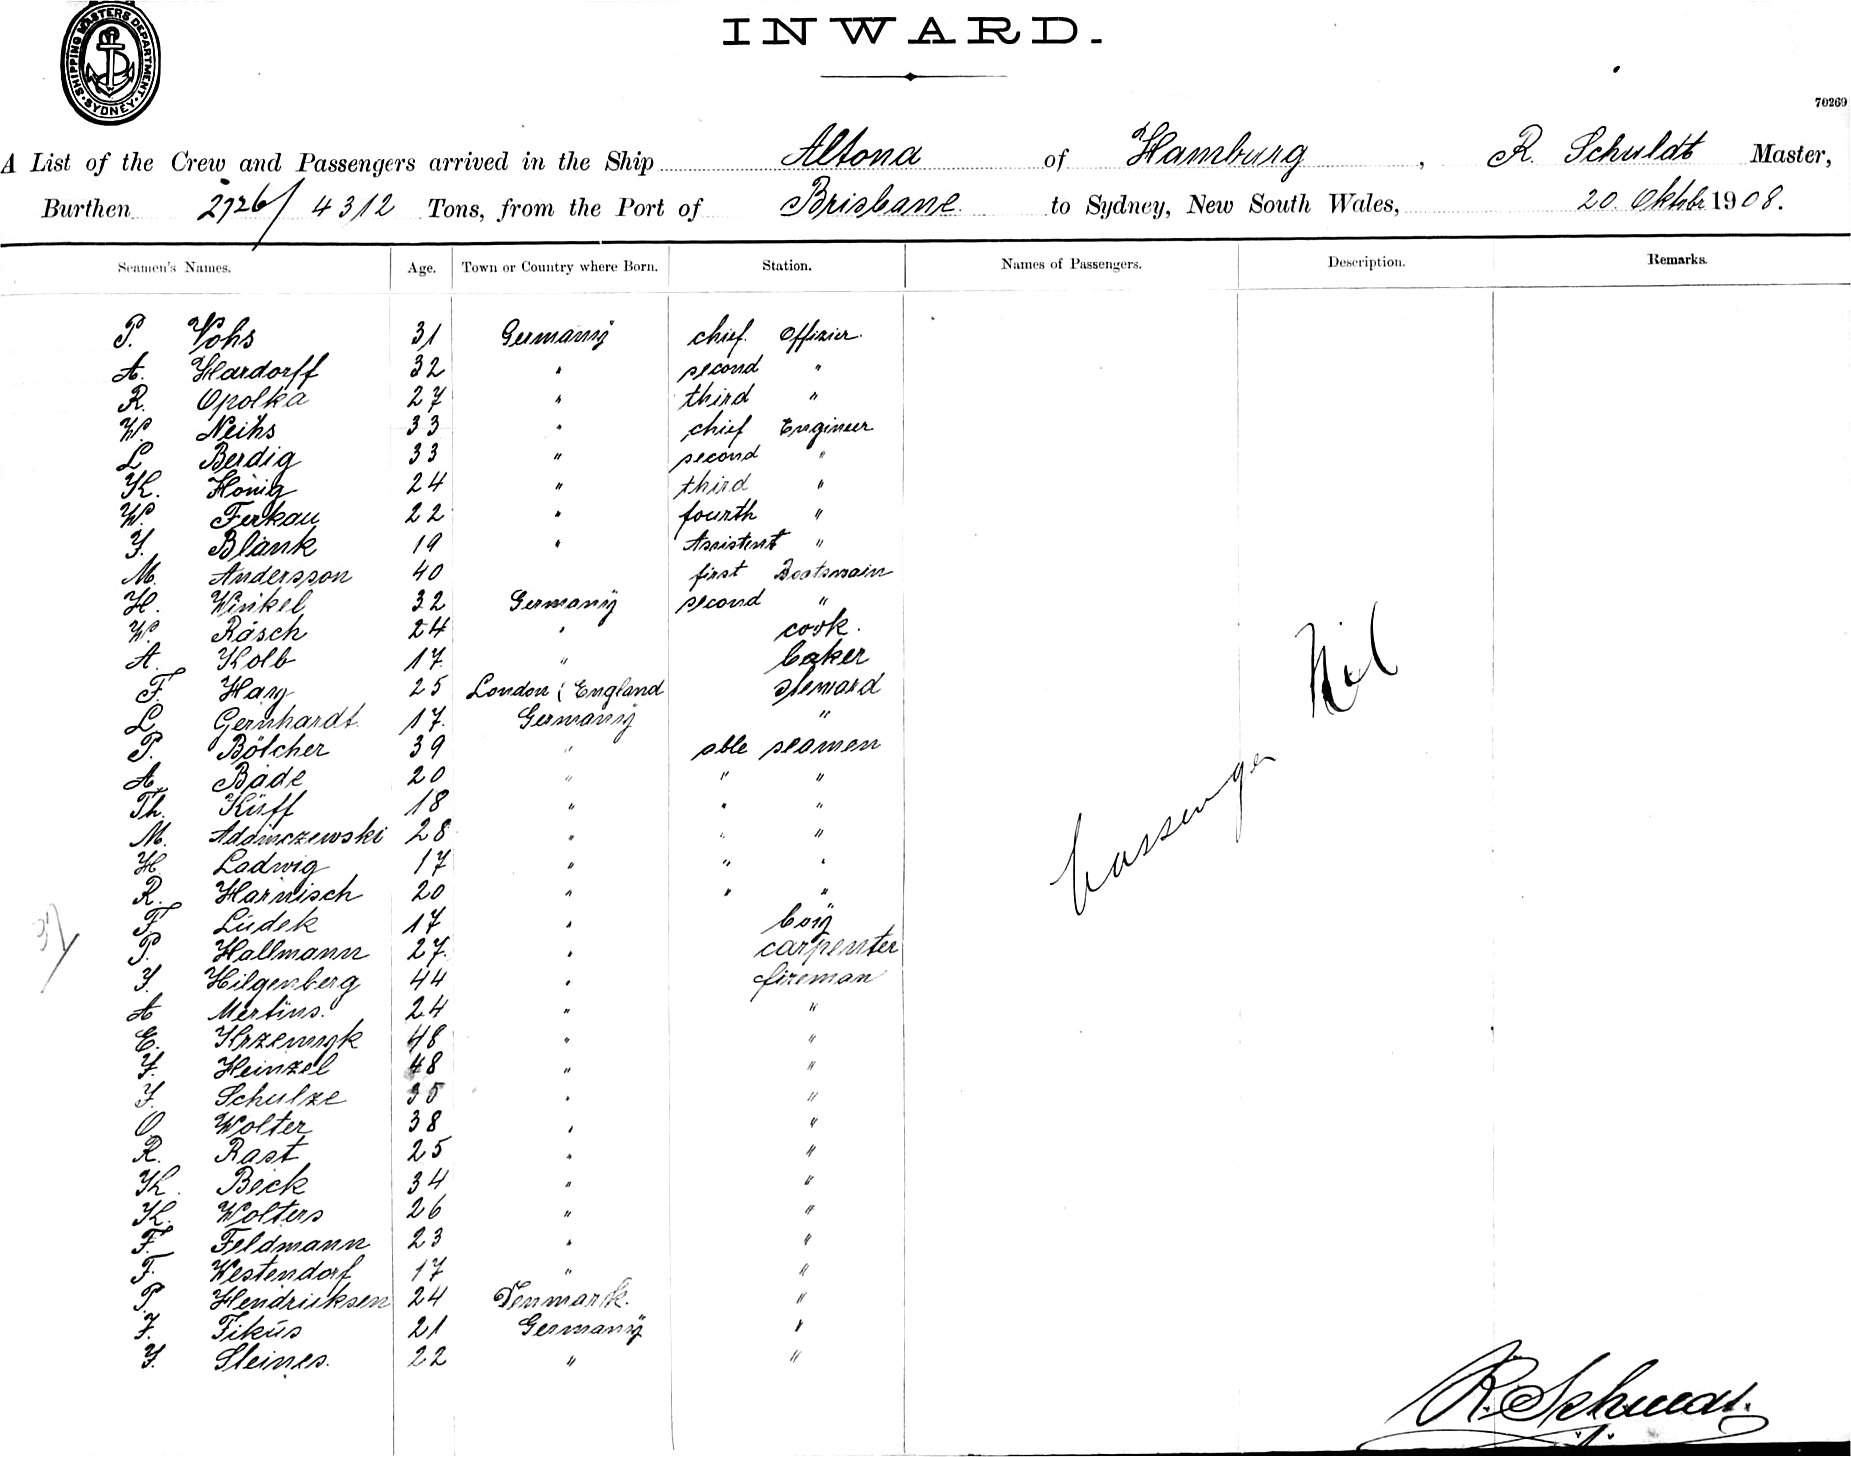 SHIPPING MASTERS DEPARTMENT. SYDNEY.
INWARD.
70269
A List of the Crew and Passengers arrived in the Ship Altona of Hamburg, R. Schuldt Master,
Burthen 2726/4312 Tons, from the Port of Brisbane to Sydney, New South Wales, 20. Oktobr 1908.
Seamen's Names. Age. Town or Country where Born. Station. Names of Passengers. Description. Remarks.
P. Vohs 31 Germany chief. Offizier.
A. Hardorff 32 " second "
R. Opolka 27 " third "
W. Neihs 33 " chief Engineer
L Berdig 33 " second "
K. König 24 " third "
W. Ferkau 22 " fourth "
J. Blank 19 " Assistent "
M. Andersson 40 first Bootsmain
H. Winkel 32 Germany second "
W. Räsch 24 " cook.
A. Kolb 17 " baker
F. Hay 25 London ( England steward
L Gernhardt. 17. Germany "
P. Bölcher 39 " able seamen
A. Bade 20 " " "
Th. Kirff 18 " " "
M. Adamczewski 28 " " "
H Ladwig 17 " " "
R. Harnisch 20 " " "
F Lüdek 17 " boy
P. Hallmann 27. " carpenter
J. Hilgenberg 44 " fireman
A Mertins. 24 " "
E. 48 " "
J. Heinzel 48 " "
J. Schulze 35 " "
O Wolter 38 " "
R. Rast 25 " "
K. Beick 34 " "
K. Wolters 26 " "
F. Feldmann 23 " "
F. Westendorf 17 " "
P. Hendriksen 24 Denmark. "
F. Fikus 21 Germany "
J. Steines. 22 " "
Passenger Nil
R. Schuldt.